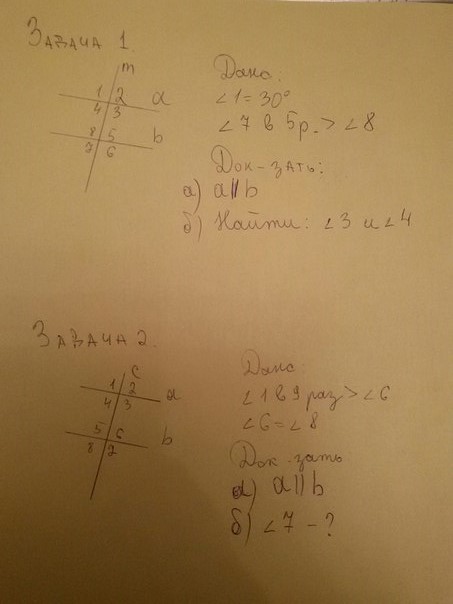 Задача 1.
m
1 2 a
4 3
8 5 b
7 6
Дано:
∠1 = 30°
∠7 в 5 р. > ∠8
Док-зать:
а) a || b
б) Найти: ∠3 и ∠4
Задача 2.
c
1 2 a
4 3
5 6 b
8 7
Дано:
∠1 в 9 раз > ∠6
∠6 = ∠8
Док-зать
а) a || b
б) ∠7 - ?